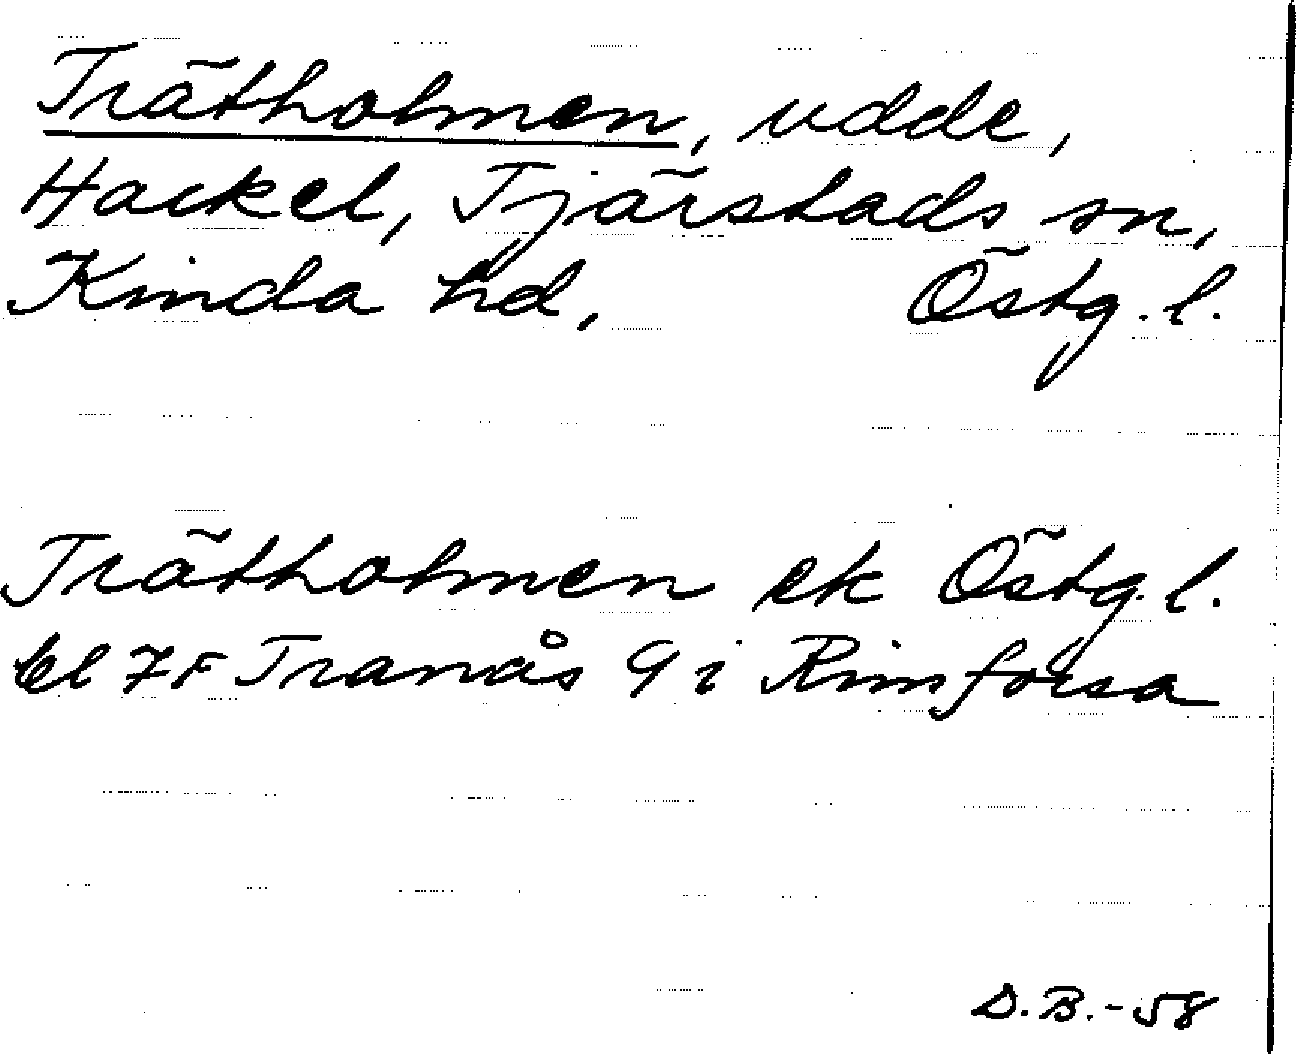 Trätholmen, udde,
Hackel, Tjärstads sn,
Kinda hd, Östg. l.
Trätholmen ek Östg. l.
bl 7F Tranås 9 i Rimforsa
D.B.-58